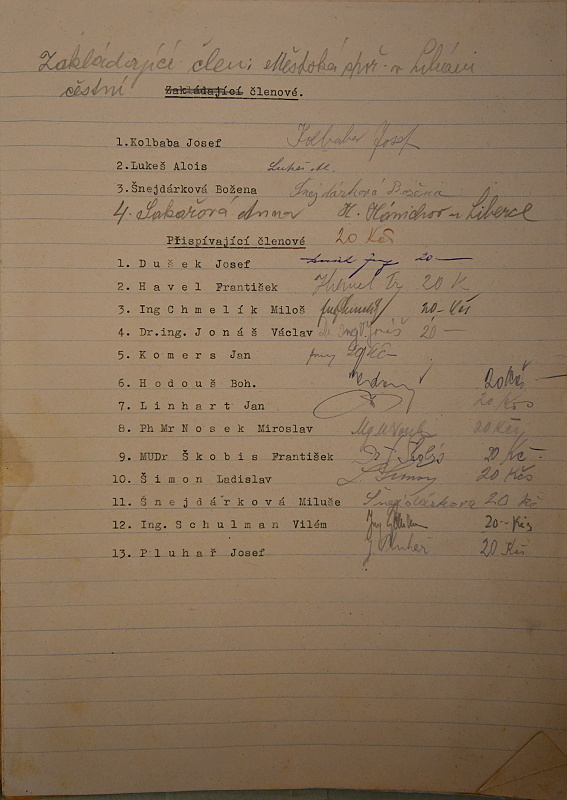 Zakládající člen: Městská spoř. v Libáni
čestní Zakládající členové.
1.Kolbaba Josef Kolbaba Josef
2.Lukeš Alois Lukeš Al.
3.Šnejdárková Božena Šnejdárková Božena
4. Sakařová Anna H. Hánichov u Liberce
Přispívající členové 20 Kčs
1. Dušek Josef 20 —
2. Havel František 20 K
3. Ing Chmelík Miloš 20.- Kčs
4. Dr.ing. Jonáš Václav 20 —
5. Komers Jan
6. Hodouš Boh. 20 Kčs —
7. Linhart Jan 20 Kčs
8. Ph Mr Nosek Miroslav 20 Kčs
9. MUDr Škobis František 20 Kč -
10. Šimon Ladislav 20 Kčs
11. Šnejdárková Miluše Šnejdárková 20 Kč
12. Ing. Schulman Vilém 20.- Kčs
13. Pluhař Josef 20 Kčs